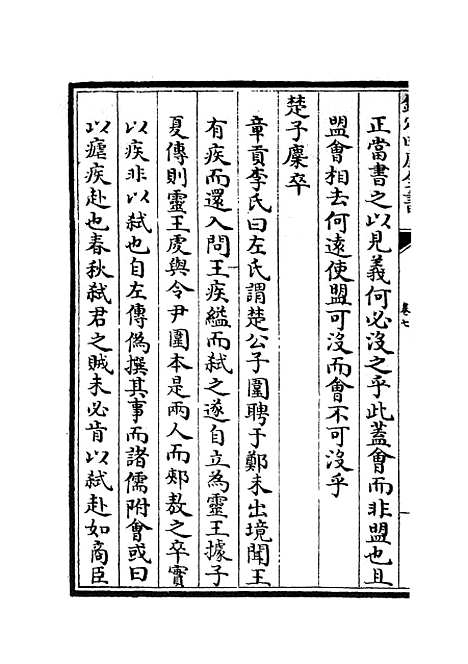 欽定四庫全書
卷七
正當書之以見義何必沒之乎此蓋會而非盟也且
盟會相去何遠使盟可沒而會不可沒乎
楚子麇卒
章貢李氏曰左氏謂楚公子圍聘于鄭未出境聞王
有疾而還入問王疾縊而弑之遂自立為靈王據子
夏傳則靈王䖍與令尹圍本是兩人而郟敖之卒實
以疾非以弑也自左傳偽撰其事而諸儒附會或曰
以瘧疾赴也春秋弑君之賊未必肯以弑赴如商臣